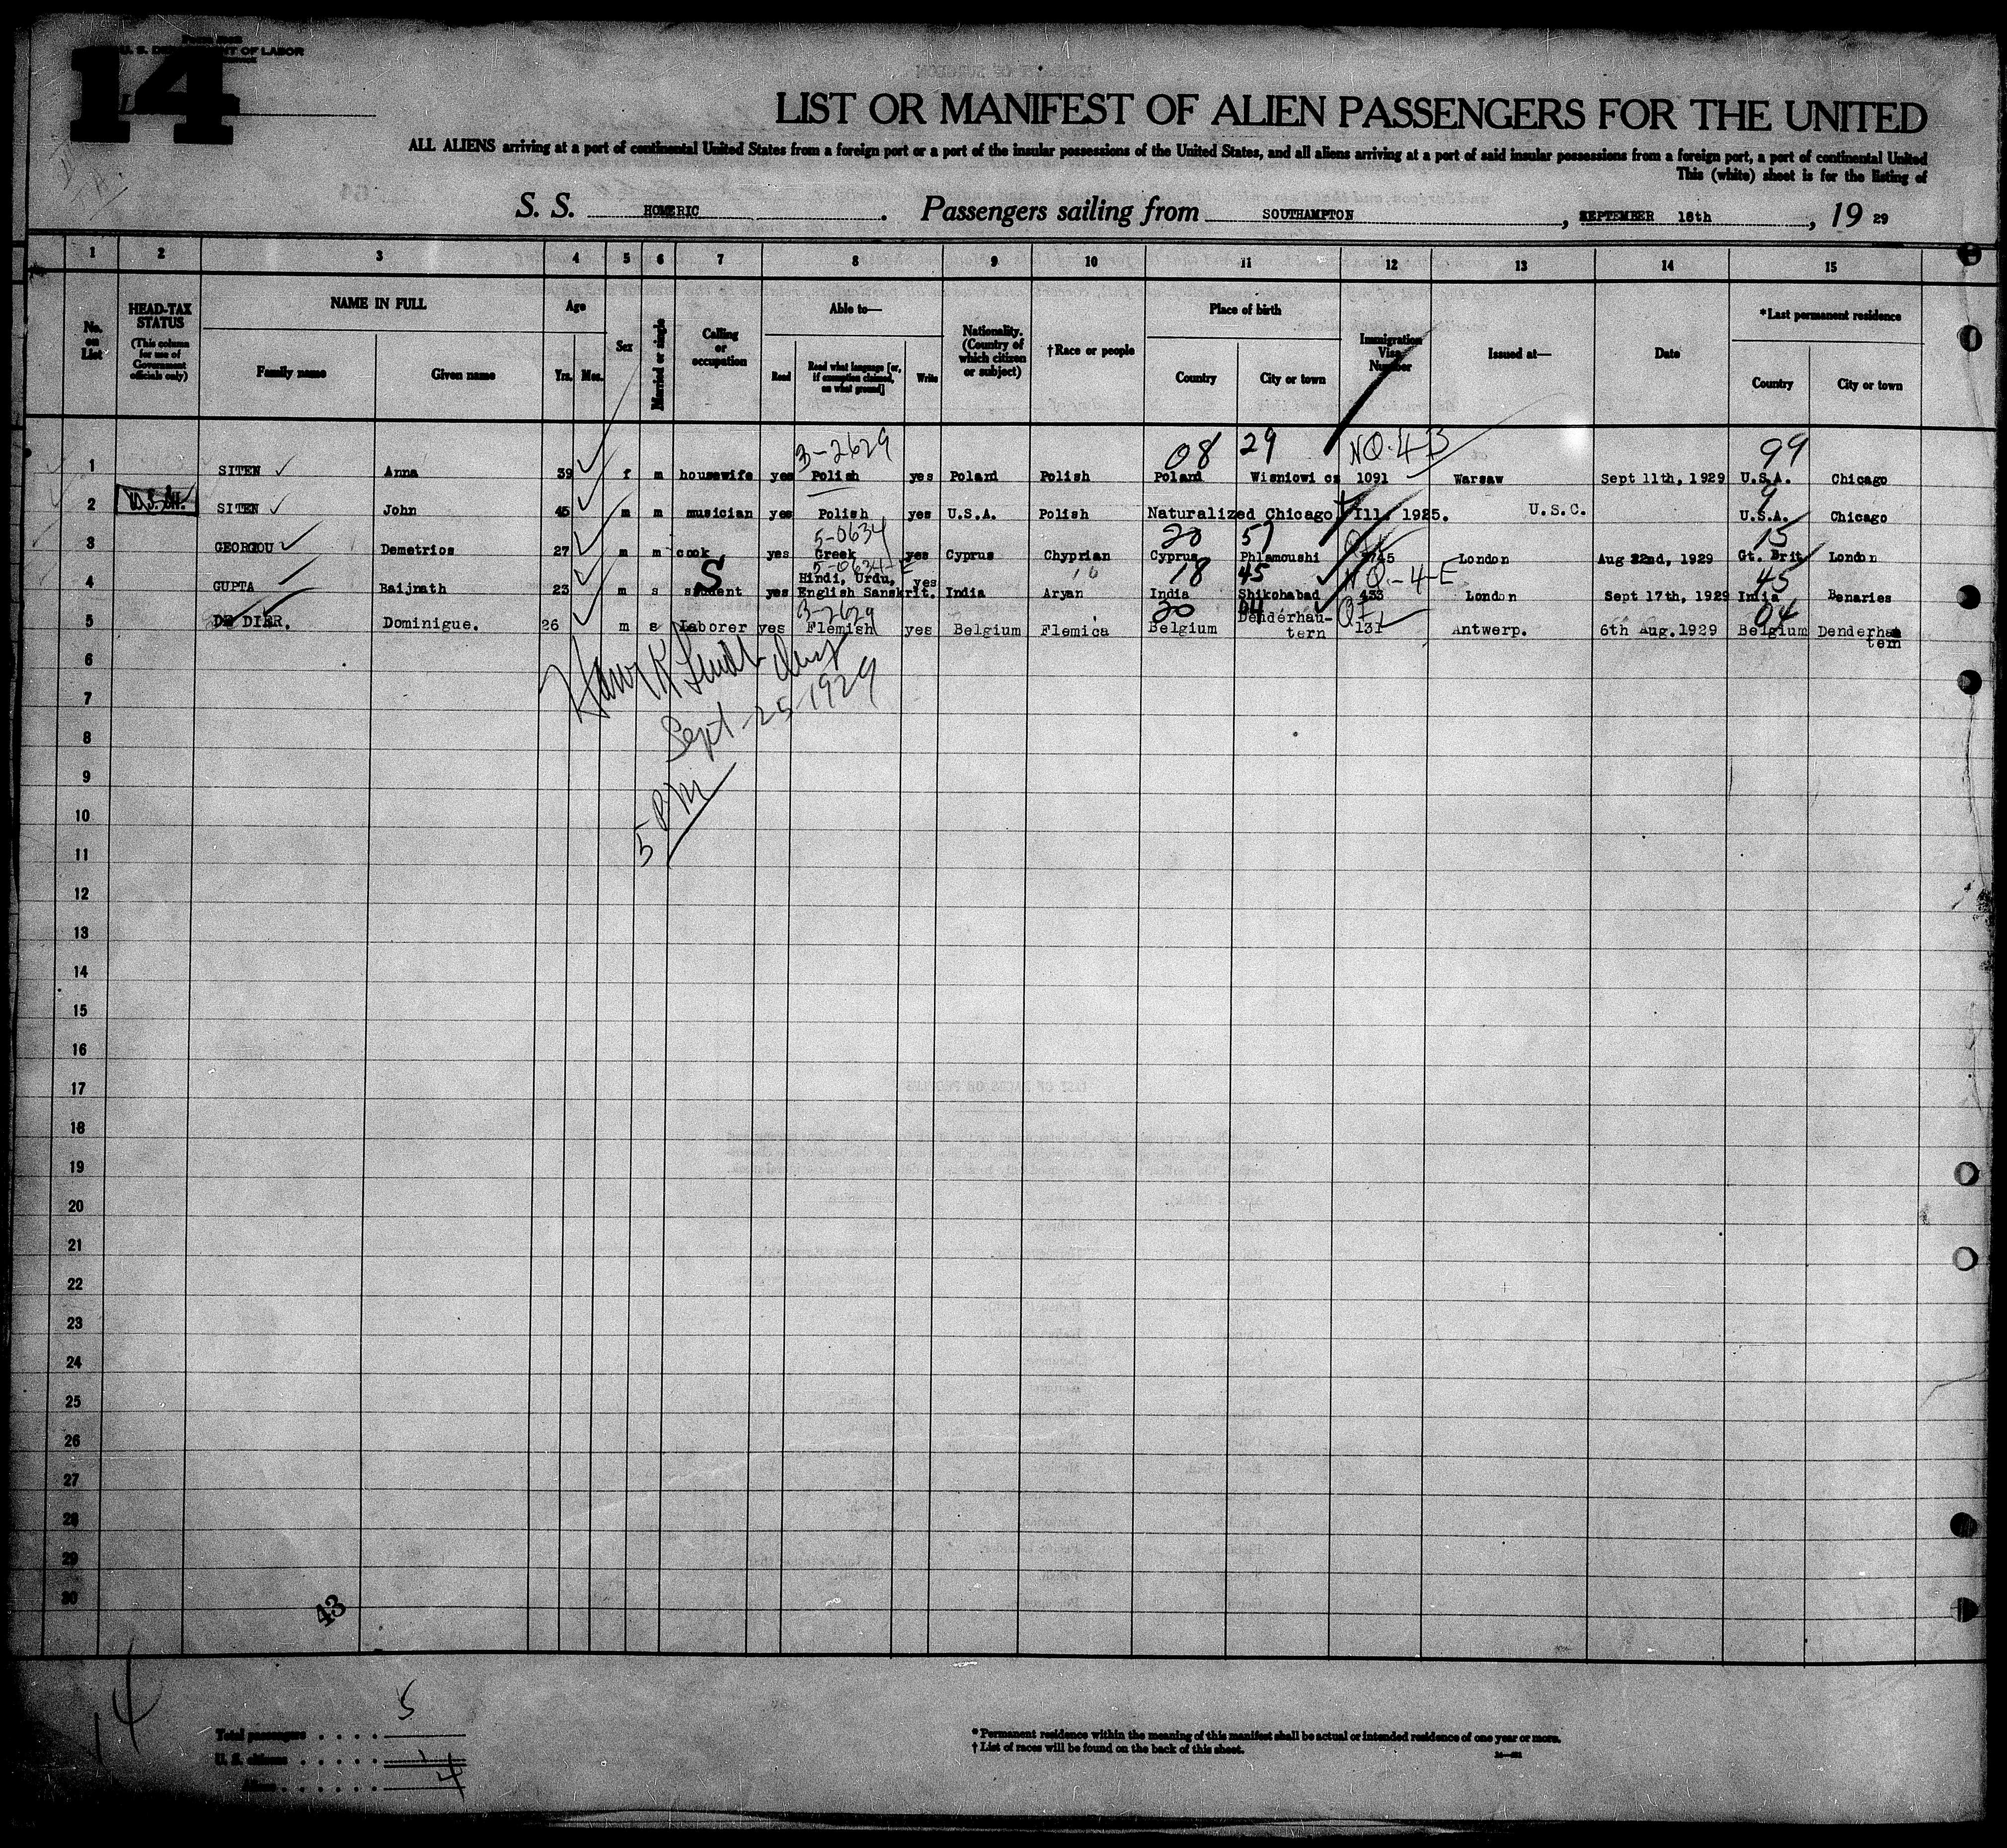 Form 500B
U. S. DEPARTMENT OF LABOR
14
LIST OR MANIFEST OF ALIEN PASSENGERS FOR THE UNITED
ALL ALIENS arriving at a port of continental United States from a foreign port or a port of the insular possessions of the United States, and all aliens arriving at a port of said insular possessions from a foreign port, a port of continental United
This (white) sheet is for the listing of
S. S. HOMERIC. Passengers sailing from SOUTHAMPTON, SEPTEMBER 18th, 19 29
1 2 3 4 5 6 7 8 9 10 11 12 13 14 15
No. on List
HEAD-TAX STATUS (This column for use of Government officials only)
NAME IN FULL
Family name Given name
Age
Yrs. Mos.
Sex
Married or single
Calling or occupation
Able to—
Read Read what language [or, if exemption claimed, on what ground] Write
Nationality. (Country of which citizen or subject)
†Race or people
Place of birth
Country City or town
Immigration Visa Number
Issued at—
Date
*Last permanent residence
Country City or town
3-2629 08 29 NQ-4B 99
1 SITEN Anna 39 f m housewife yes Polish yes Poland Polish Poland Wisniowi cs 1091 Warsaw Sept 11th, 1929 U.S.A. Chicago
2 U.S.BH. SITEN John 45 m m musician yes Polish yes U.S.A. Polish Naturalized Chicago Ill. 1925. U.S.C. U.S.A. Chicago
5-0634 20 57 15
3 GEORGIOU Demetrios 27 m m cook yes Greek yes Cyprus Chyprian Cyprus Phlamoushi 745 London Aug 22nd, 1929 Gt. Brit London
5-0634-E 18 45 NQ-4-E 45
4 GUPTA Baijnath 23 m s S student yes Hindi, Urdu, English Sanskrit. yes India Aryan India Shikohabad 433 London Sept 17th, 1929 India Benaries
3-2629 20 04 04
5 DE DIER. Dominigue. 26 m s Laborer yes Flemish yes Belgium Flemica Belgium Denderhautern 131 Antwerp. 6th Aug.1929 Belgium Denderhautem
6
Sept-25-1929
7
8
9
5 PM
10
11
12
13
14
15
16
17
18
19
20
21
22
23
24
25
26
27
28
29
30
43
14
Total passengers . . . . 5
U. S. citizens . . . . . 1
Aliens . . . . . . 4
* Permanent residence within the meaning of this manifest shall be actual or intended residence of one year or more.
† List of races will be found on the back of this sheet.